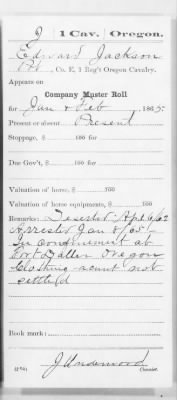 J | 1 Cav. | Oregon.
Edward Jackson
Pvt., Co. E, 1 Reg't Oregon Cavalry.
Appears on
Company Muster Roll
for Jan & Feb, 1865.
Present or absent Present
Stoppage, $ 100 for
Due Gov't, $ 100 for
Valuation of horse, $ 100
Valuation of horse equipments, $ 100
Remarks: Deserted Apl 6/62
Arrested Jan 8/65
In confinement at
Fort Dalles Oregon
Clothing acount not
settled
Book mark:
J Underwood
(358) Copyist.